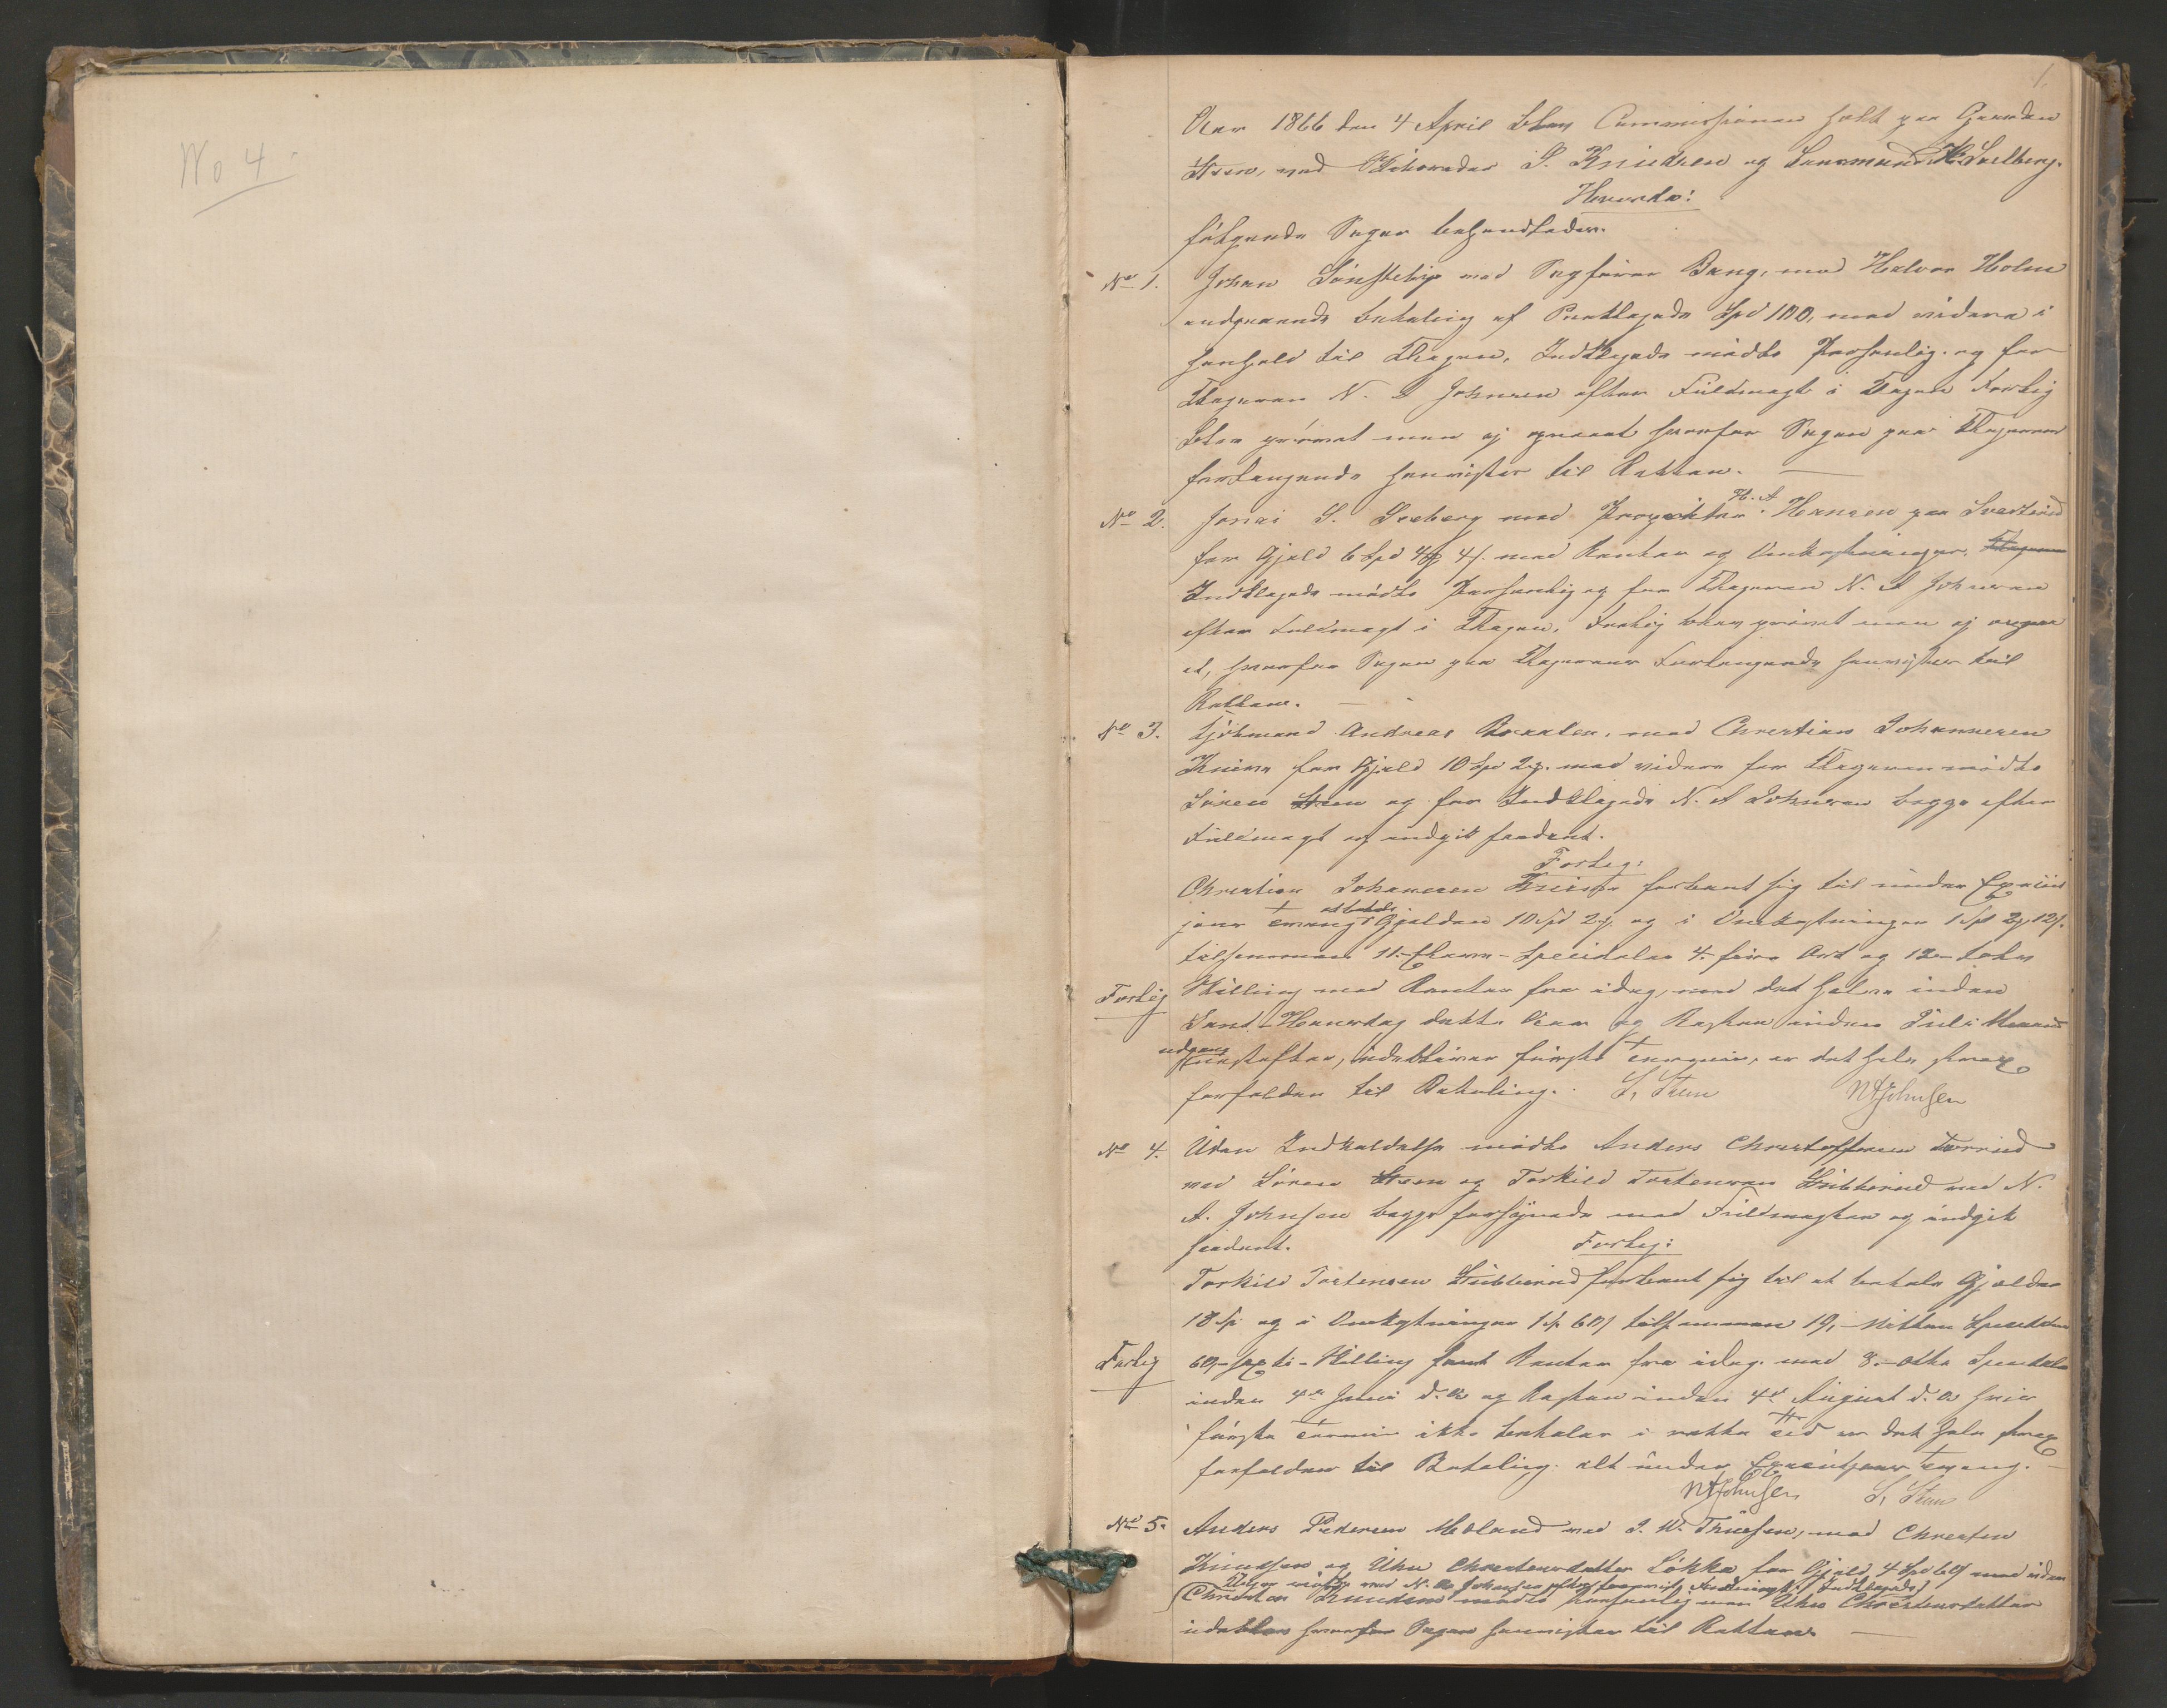 No 4
1.
Aar 1866 den 4 April blev Commissionen holt paa Gaarden
Steen, med Skibsreder S. Knudsen og Lensmand H. Solberg.
Hvorda:
følgende Sager behandledes.
No 1. Johan med Sagfører Bang, mod Halvor Holm
angaaende Betaling af Paaklagede Spd 100, med videre i
henhold til Klagen, Indklagede mødte Personlig og for
Klageren N. A Johnsen efter Fuldmagt i Klagen Forlig
blev prøvet men ej opnaaet hvorfor Sagen paa Klagerens
forlangende henvistes til Retten.
No 2. S. mod Proprietær H. A. Hansen paa
for Gjæld 6 Spd 4 4 s. med Renter og Omkostninger. Klageren
Indklagede mødte Personlig og for Klageren N. A Johnsen
efter Fuldmagt i Klagen, Forlig blev prøvet men ej opnaa
et, hvorfor Sagen paa Klagerens Forlangende henvistes til
Retten.
No 3. Sjømand Andreas Braaten, mod Christian Johannesen
for Gjæld 10 Spd 2 med videre for Klageren mødte
Søren Steen og for Indklagede N. A Johnsen begge efter
Fuldmagt og indgik saadant.
Forlig:
Christian Johannesen forbant sig til under Execut
jons Tvang at betale Gjælden 10 Spd 2 og i Omkostninger 1 Spd 2 12 s.
tilsammen 11.-Elleve-Speciedaler 4. fire Ort og 12-tolv
Forlig Skilling med Renter fra idag, med det halve inden
Sanct Hansdag dette Aar og Resten inden Juli Maaneds
udgang næstefter, udebliver første Termin, er det hele strax
forfalden til Betaling. S, Steen NAJohnsen
No 4. Uden Indkaldelse mødte Anders Christoffersen
med Søren Steen og Torkild Tostensen med N.
A. Johnsen begge forsynede med Fuldmagter og indgik
saadant. Forlig:
Torkild Tostensen forbant sig til at betale Gjælden
18 Sp og i Omkostninger 1 Sp 60 s tilsammen 19,-Nitten Speciedaler
Forlig 60,-sexti-Skilling samt Renter fra idag. med 8.-otte Speciedaler
inden 4de Juni d. A og Resten inden 4de August d. A hvis
første Termin ikke betales i rette Tid er det hele strax
forfalden til Betaling. alt under Executjons Tvang.
NAJohnsen S, Steen
No 5. Anders Pedersen Moland med J. W. Thuesen, mod Christen
Knudsen og Christensdatter Løkke for Gjæld 4 Spd 60 s med videre
Klager mødte ved N. A. Johnsen efter Fuldmagt. Indklagede
(Christen Knudsen mødte Personlig men Christensdatter
udeblev hvorfor Sagen henvistes til Retten.